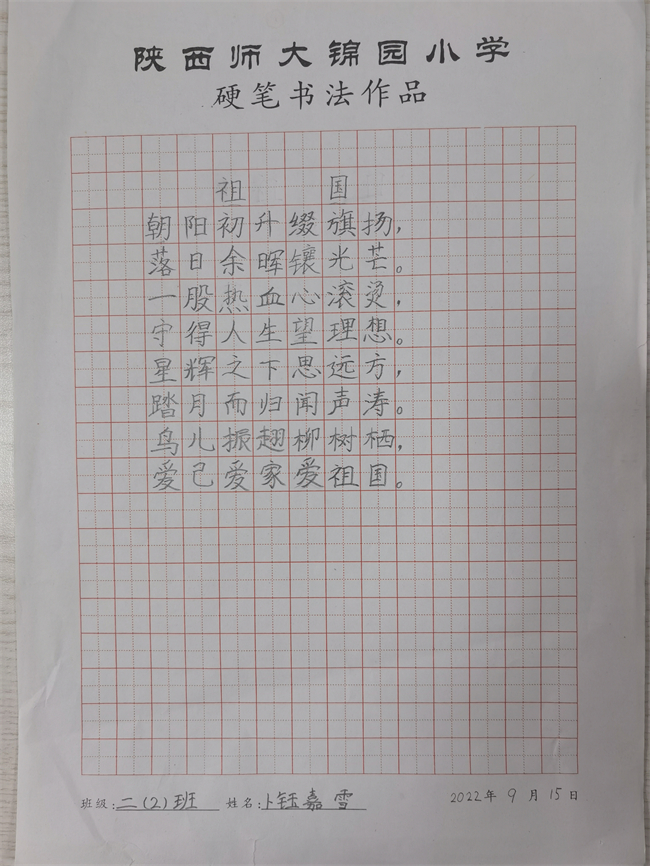 陕西师大锦园小学
硬笔书法作品
祖 国
朝阳初升缀旗扬,
落日余晖镶光芒。
一股热血心滚烫,
守得人生望理想。
星辉之下思远方,
踏月而归闻声涛。
鸟儿振翅柳树栖,
爱己爱家爱祖国。
班级:二(2)班 姓名:卜钰嘉雪 2022年9月15日